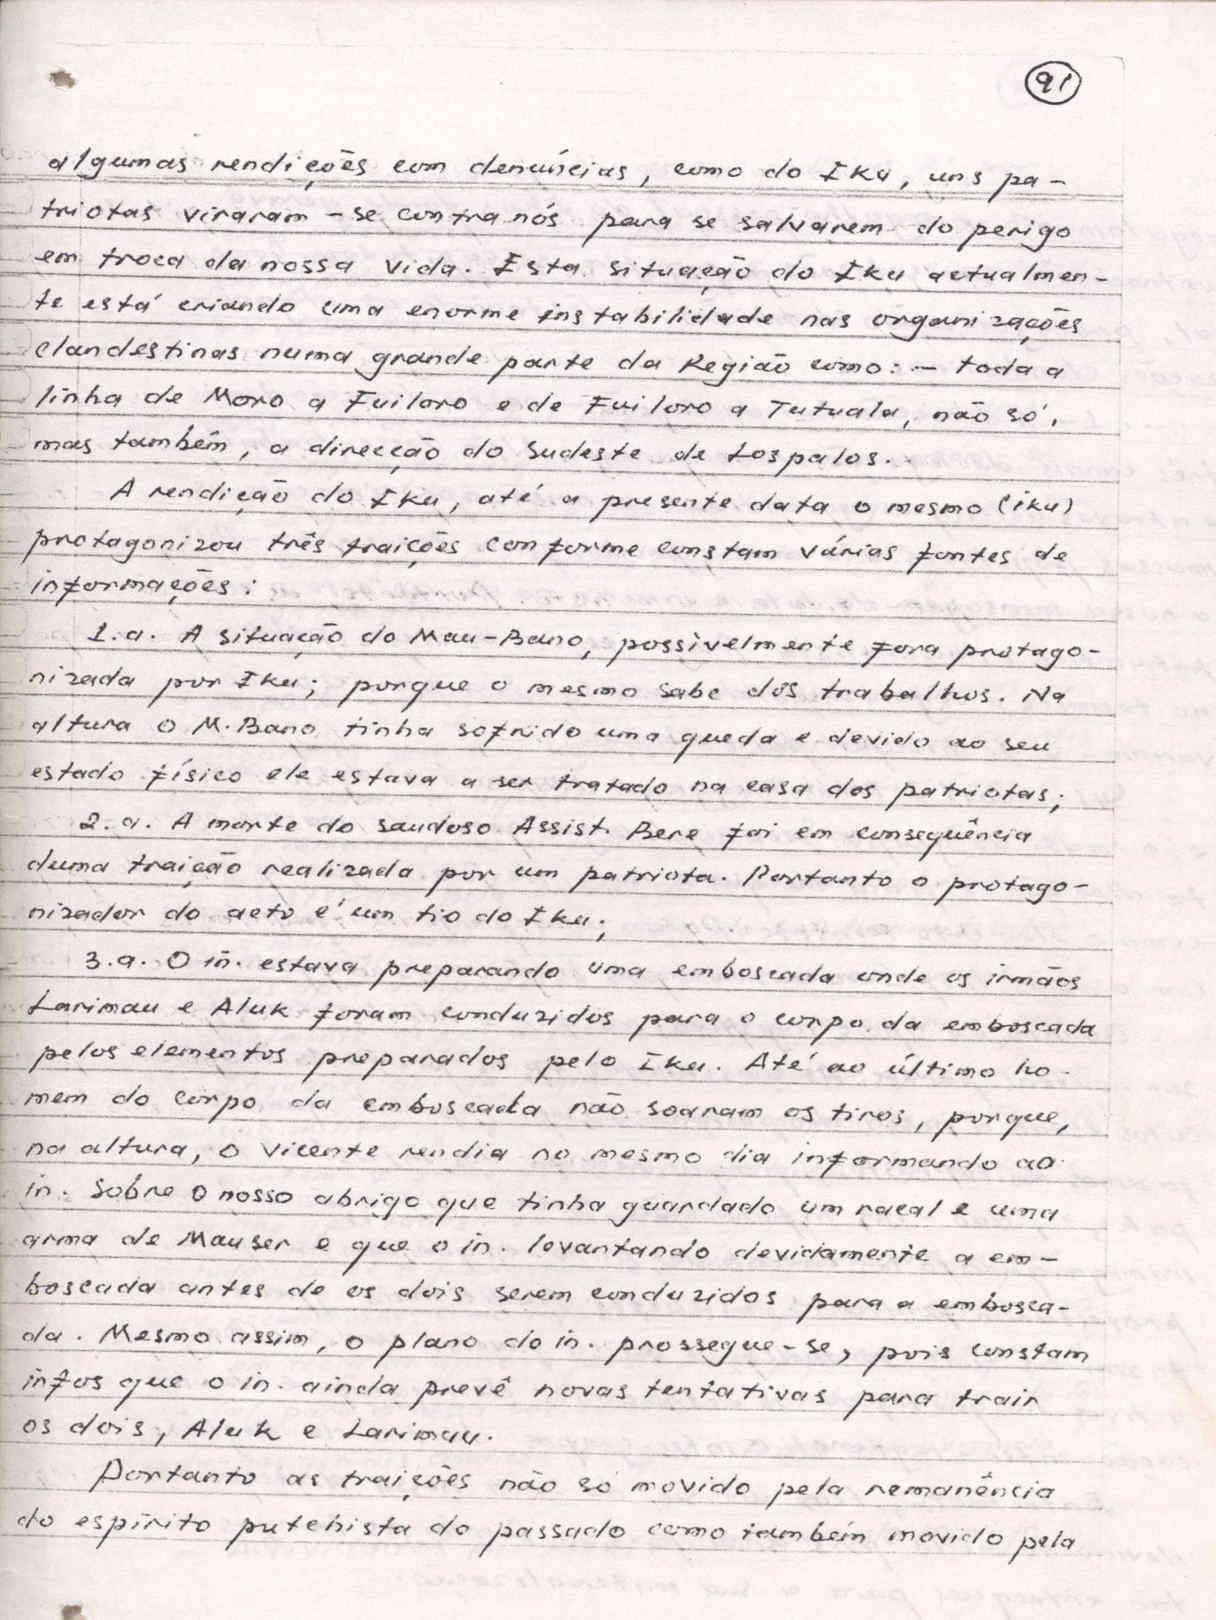 91
algumas rendições com denúncias, como do Iku, uns pa-
triotas viraram-se contra nós para se salvarem do perigo
em troca da nossa vida. Esta situação do Iku actualmen-
te está criando uma enorme instabilidade nas organizações
clandestinas numa grande parte da Região como: - toda a
linha de Moro a Fuiloro e de Fuiloro a Tutuala, não só,
mas também, a direcção do Sudeste de Lospalos.
A rendição do Iku, até a presente data o mesmo (iku)
protagonizou três traições conforme constam várias fontes de
informações:
1.a. A situação do Mau-Bano, possivelmente fora protago-
nizada por Iku; porque o mesmo sabe dos trabalhos. Na
altura o M. Bano tinha sofrido uma queda e devido ao seu
estado físico ele estava a ser tratado na casa dos patriotas;
2.a. A morte do saudoso Assist. Bere foi em consequência
duma traição realizada por um patriota. Portanto o protago-
nizador do acto é um tio do Iku;
3.a. O in. estava preparando uma emboscada onde os irmãos
Larimau e Aluk foram conduzidos para o corpo da emboscada
pelos elementos preparados pelo Iku. Até ao último ho-
mem do corpo da emboscada não soaram os tiros, porque,
na altura, o Vicente rendia no mesmo dia informando ao
in. Sobre o nosso abrigo que tinha guardado um racal e uma
arma de Mauser e que o in. levantando devidamente a em-
boscada antes de os dois serem conduzidos para a embosca-
da. Mesmo assim, o plano do in. prossegue-se, pois constam
infos que o in. ainda prevê novas tentativas para trair
os dois, Aluk e Larimau.
Portanto as traições não só movido pela remanência
do espírito putchista do passado como também movido pela